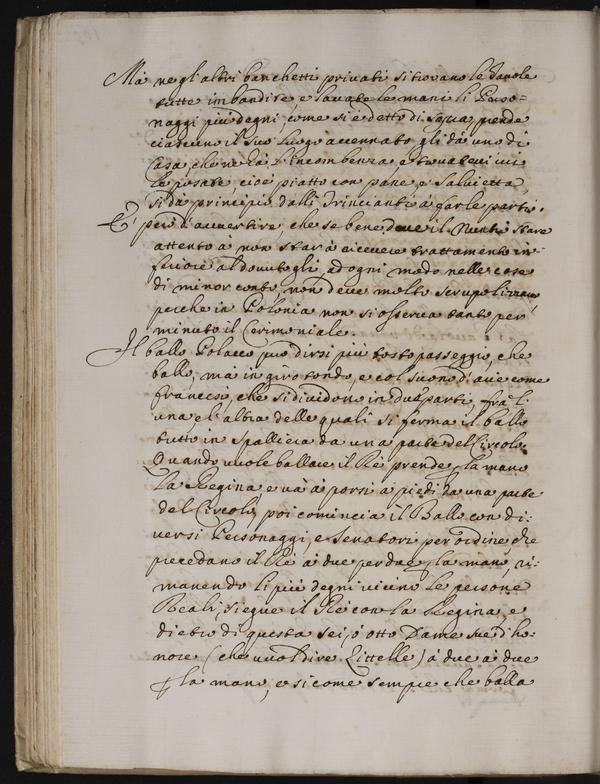 Mà negl'altri banchetti privati si trovano le Tavole
tutte imbandite, e lavate le mani li Perso=
naggi più degni, come si è detto di sopra, prende
ciascuno il suo luogo accennatogli da uno di
Casa, che ne hà l'incombenza, e trovatevi ivi
le posate, cioè piatto con pane, e salvietta,
si dà principio dalli Trincianti à far le parti.
E' però d'avvertire, che se bene deve il Nuntio stare
attento à non star à ricevere trattamento in=
feriore al dovutogli, ad ogni modo nelle cose
di minor conto, non deve molto scrupolizzare
perche in Polonia non si osserva tanto per
minuto il Cerimoniale.
Il ballo Polacco può dirsi più tosto passeggio, che
ballo, mà in giro tondo, e col suono d'arie come
francesi, che si dividon in due parti, frà l'
una, e l'altra delle quali si ferma il ballo
tutto in spalliera da una parte del Circolo.
Quando vuole ballare il Rè prende p la mano
la Regina e và à porsi à piedi da una parte
del Circolo, poi comincia il Ballo con di=
versi Personaggi, e Senatori per ordine che
precedano il Rè à due per due p la mano, ri=
manendo li più degni vicino le persone
Reali, siegue il Rè con la Regina, e
dietro di questa sei, ò otto Dame sue d'ho=
nore (che vuol dire Zittelle) à due à due
p la mano, e si come sempre che balla